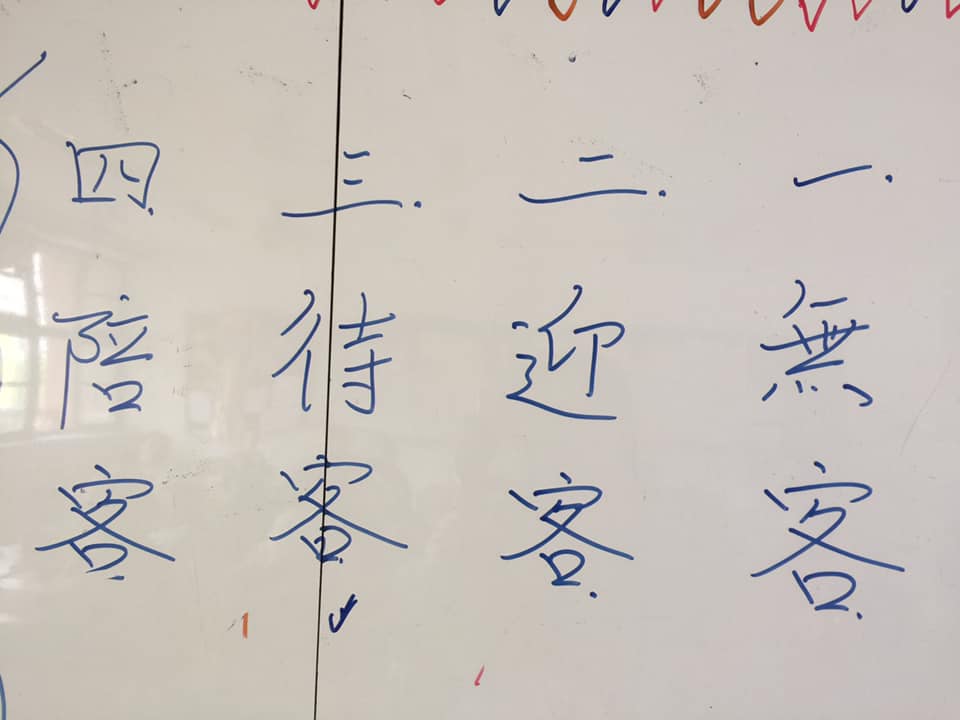 一.無客.
二.迎客.
三.待客.
四.陪客.